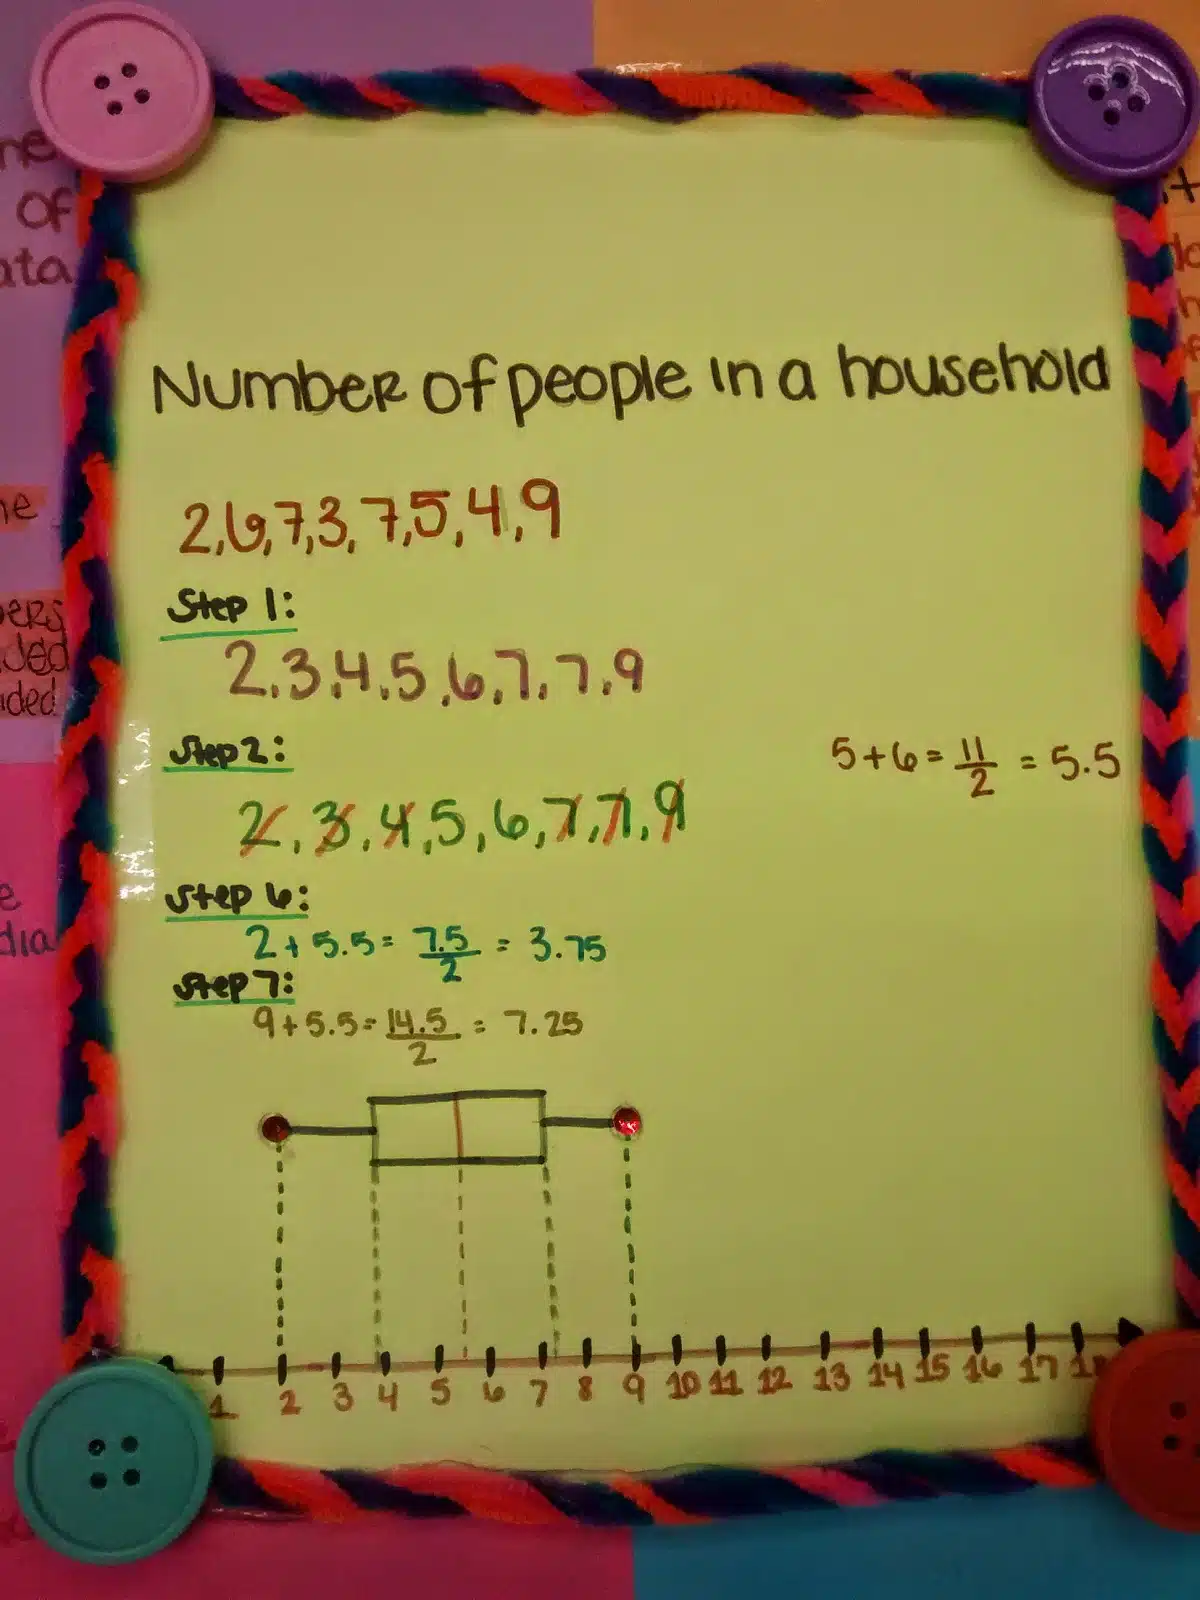 Number of people in a household
2,6,7,3,7,5,4,9
Step 1:
2,3,4,5,6,7,7,9
Step 2:
5+6= 11/2 = 5.5
2,3,4,5,6,7,7,9
Step 6:
2+5.5= 7.5/2 = 3.75
Step 7:
9+5.5= 14.5/2 = 7.25
1 2 3 4 5 6 7 8 9 10 11 12 13 14 15 16 17 18
OF